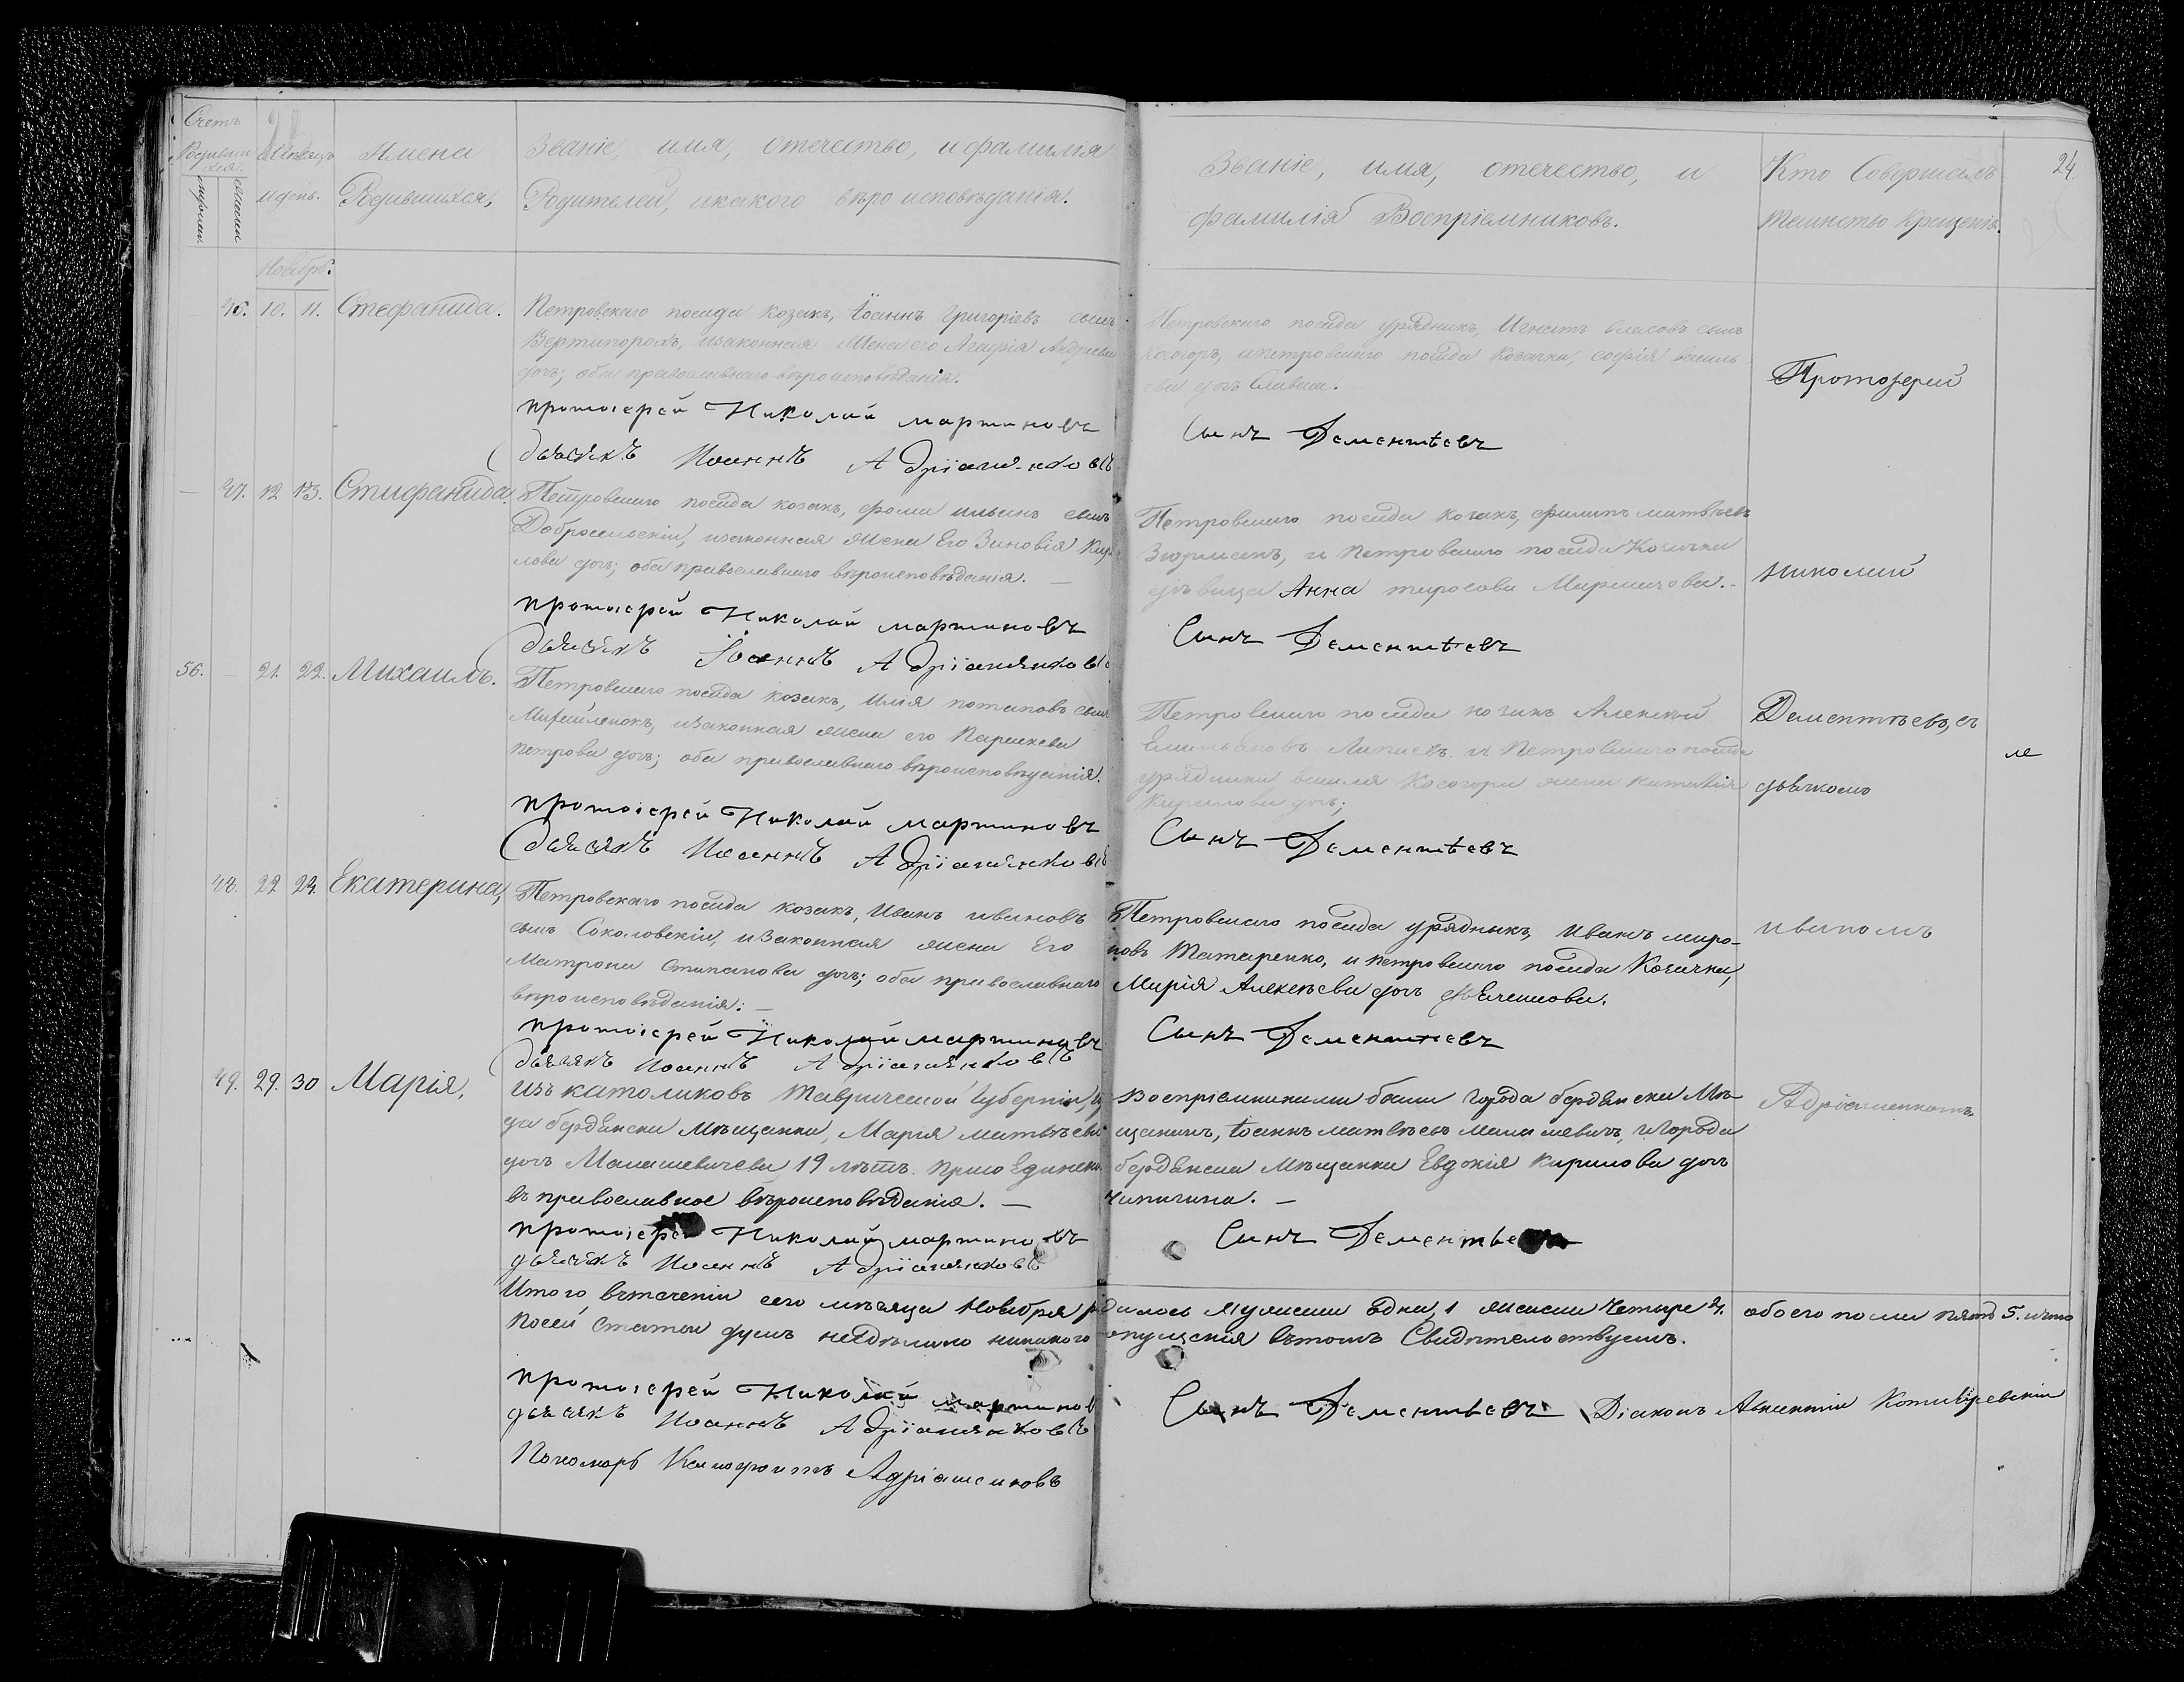 Счетъ Родивших-
ся.
мужска.
женска
Мѣсяцъ
и день.
Имена
Родившихся,
Званіе, имя, отечество, и фамилія
Родителей, и какого вѣроисповѣданія.
Званіе, имя, отечество, и
фамилія Воспріемниковъ.
Кто Совершалъ
таинство крещенія.
24.
Ноябрь.
46. 10. 11. Стефанида.
Петровскаго посада козакъ, Іоаннъ григоріевъ сынъ
Вертипорохъ, изаконная жена его Агафія Андреева
дочь; оба православнаго вѣроисповѣданія.
протоіерей Николай мартиновъ
дьячекъ Иоаннъ Адріаненковъ
Петровскаго посада урядникъ, Игнатъ власовъ сынъ
Косогоръ, ипетровскаго посада козачка, софія василь-
ева дочь
Сынъ Дементьевъ
Протоіерей
— 47. 12 13. Стифанида.
Петровскаго посада козакъ, фома ильинъ сынъ
Добросельскій, изаконная жена Его Зиновія Кири
лова дочь; оба православнаго вѣроисповѣданія. —
протоіерей Николай мартиновъ
дьячекъ Іоаннъ Адріаненковъ
Петровскаго посада козакъ, филипъ матвѣевъ
и Петровскаго посада Козачка
дѣвица Анна тарасова
Сынъ Дементьевъ
Николай
56. — 21. 22. Михаилъ.
Петровскаго посада козакъ, Илія потаповъ сынъ
изаконная жена его Параскева
петрова дочь; оба православнаго вѣроисповѣданія.
протоіерей Николай мартиновъ
дьячекъ Иоаннъ Адріаненковъ
Петровскаго посада козакъ Алексѣй
Емильяновъ и Петровскаго посада
урядника василія Косогора жена наталія
Кирилова дочь;
Сынъ Дементьевъ
Дементьевъ, съ
дьячкомъ
48. 22 24. Екатерина,
Петровскаго посада козакъ, Иванъ ивановъ
сынъ Соколовскій, изаконная жена Его
Матрона Стипанова дочь; оба православнаго
вѣроисповѣданія: —
протоіерей Николай мартиновъ
дьячекъ Иоаннъ Адріаненковъ
Петровскаго посада урядникъ, Иванъ миро-
новъ Татаренко, и петровскаго посада Козачка,
Марія Алексѣева дочь
Сынъ Дементьевъ
иваномъ
49. 29. 30 Марія,
изъ католиковъ Таврической Губерніи,
да бердянска Мѣщанка, Марія матвѣева
дочь Манашевичева 19 лѣтъ. присоединена
въ православное вѣроисповѣданія. —
протоіерей Николай мартиновъ
дьячекъ Иоаннъ Адріаненковъ
Воспріемниками были города бердянска Мѣ-
щанинъ, Іоаннъ матвѣевъ Манашевичъ, и города
бердянска Мѣщанка Евдокія Кирилова дочь
чипичина. —
Сынъ Дементьевъ
Адріаненкомъ
Итого втеченіи сего мѣсяца Ноября родилось Мужеска Одна, 1 женска Четыре 4. обоего пола пять 5. ичто
посей статьи душъ нездѣлано никакого опущенія вътомъ Свидѣтельствуемъ.
протоіерей Николай мартинов
Сынъ Дементьевъ Діаконъ Авксентій Котляревскій
дьячекъ Иоаннъ Адріаненковъ
Пономарь Ксенофонтъ Адріашенковъ